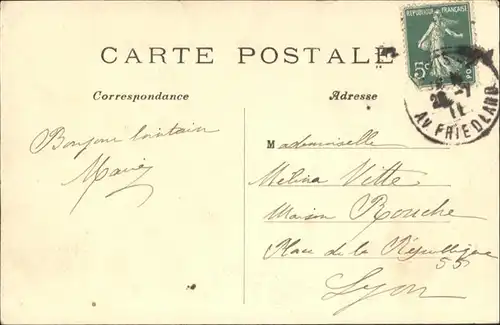 RÉPUBLIQUE FRANÇAISE
5c
CARTE POSTALE
Correspondance
Adresse
28 -7
11
AV. FRIEDLAND
Bonjour lointain
Marie
Mademoiselle
Melina Vitte
Maison Rouche
Place de la République
55
Lyon